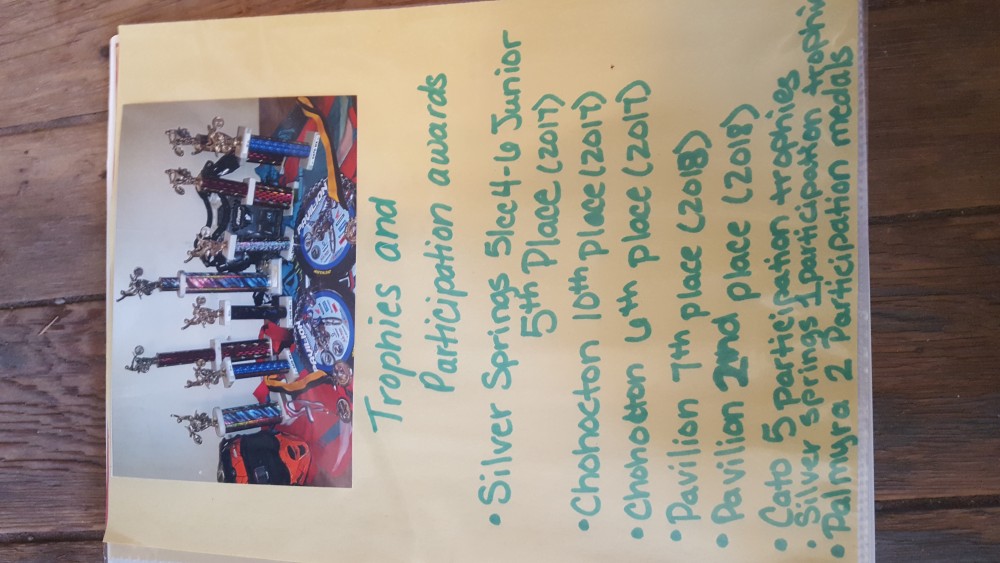 Trophies and
Participation awards
• Silver Springs 51cc 4-6 Junior
5th Place (2017)
• Chohocton 10th place (2017)
• Chohotton 4th place (2017)
• Pavilion 7th place (2018)
• Pavilion 2nd place (2018)
• Cato 5 participation trophies
• Silver springs 1 participation trophi
• Palmyra 2 Participation medals
PAVILION